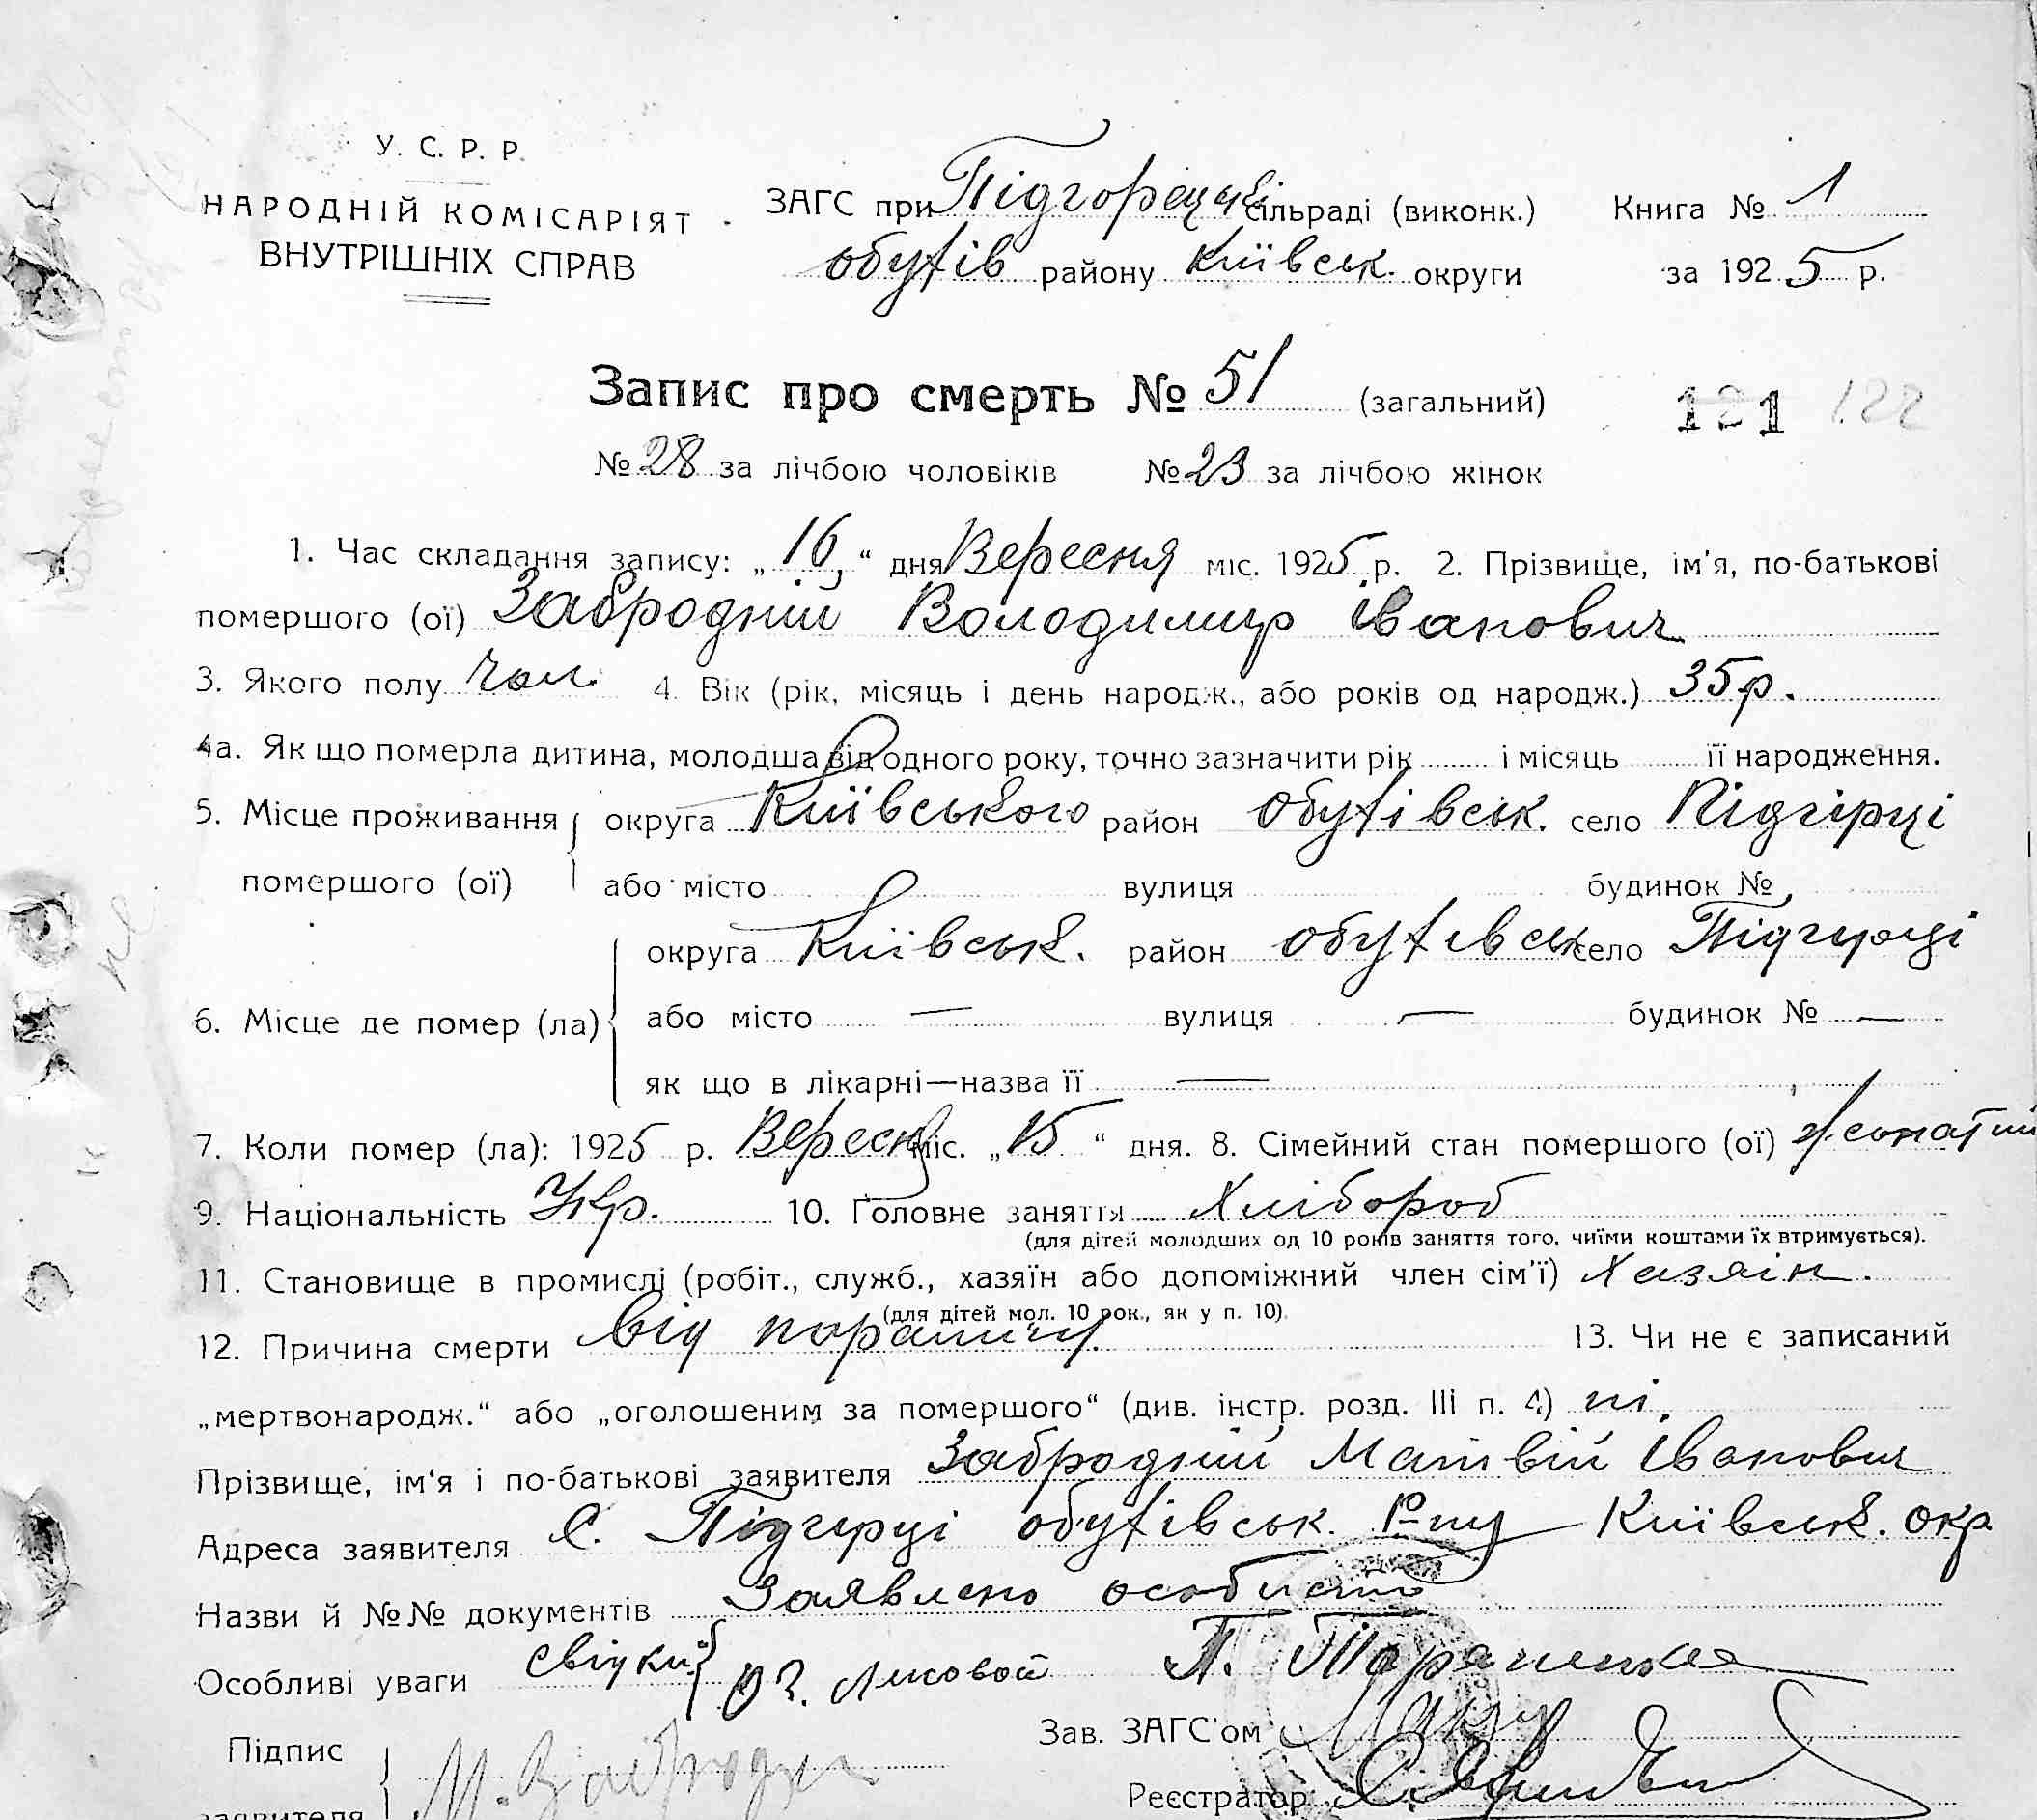 У. С. Р. Р.
НАРОДНІЙ КОМІСАРІЯТ
ВНУТРІШНІХ СПРАВ
ЗАГС при Підгорецькі сільраді (виконк.) Книга № 1
обухів району Київськ. округи за 1925 р.
Запис про смерть № 51 (загальний) 121 122
№ 28 за лічбою чоловіків № 23 за лічбою жінок
1. Час складання запису: „16“ дня Вересня міс. 1925 р. 2. Прізвище, ім'я, по-батькові
помершого (ої) Забродній Володимир Іванович
3. Якого полу чол. 4. Вік (рік, місяць і день народж., або років од народж.) 35 р.
4а. Як що померла дитина, молодша від одного року, точно зазначити рік і місяць її народження.
5. Місце проживання помершого (ої) округа Київського район обухівськ. село Підгірці
або місто вулиця будинок №
6. Місце де помер (ла) округа Київськ. район обухівськ село Підгирці
або місто — вулиця — будинок № —
як що в лікарні—назва її —
7. Коли помер (ла): 1925 р. Вересня міс. „15“ дня. 8. Сімейний стан помершого (ої) жонатий
9. Національність Укр. 10. Головне заняття Хлібороб
(для дітей молодших од 10 років заняття того, чиїми коштами їх втримується).
11. Становище в промислі (робіт., служб., хазяїн або допоміжний член сім'ї) Хазяін.
(для дітей мол. 10 рок., як у п. 10).
12. Причина смерти від паралічу. 13. Чи не є записаний
„мертвонародж.“ або „оголошеним за помершого“ (див. інстр. розд. III п. 4) ні.
Прізвище, ім'я і по-батькові заявителя Забродний Матвій Іванович
Адреса заявителя С. Підгирці обухівськ. Р-ну Київськ. окр.
Назви й №№ документів Заявлено особисто
Особливі уваги свідки Лисовой П. Тараненко
Підпис заявителя М. Забродні
Зав. ЗАГС'ом
Реєстратор